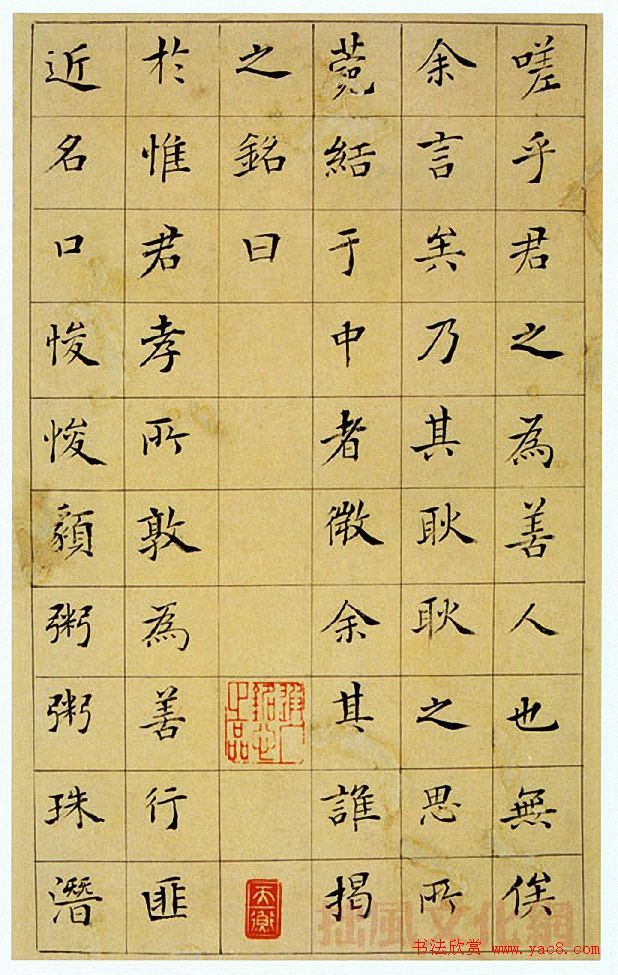 嗟乎君之為善人也無俟
余言矣乃其耿耿之思所
菀結于中者微余其誰揭
之銘曰
於惟君孝所敦為善行匪
近名口悛悛䫉粥粥珠潛
天衡
拙風文化網
书法欣赏 www.yac8.com